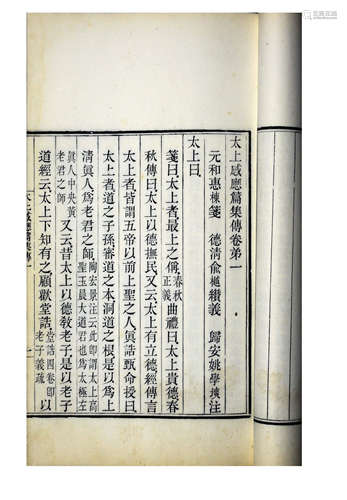 太上感應篇集傳卷弟一
元和惠棟箋　德清俞樾纘義　歸安姚學塽注
太上曰
箋曰太上者最上之稱春秋正義曲禮曰太上貴德春
秋傳曰太上以德撫民又云太上有立德經傳言
太上者皆謂五帝以前上聖之人眞誥甄命授曰
太上者道之子孫審道之本洞道之根是以爲上
清眞人爲老君之師陶宏景注云此卽謂太上高聖玉晨大道君也爲太極左
眞人中央黃老君之師又云昔太上以德敎老子是以老子
道經云太上下知有之顧歡堂誥堂誥四卷卽以老子義疏
太上感應篇集傳一